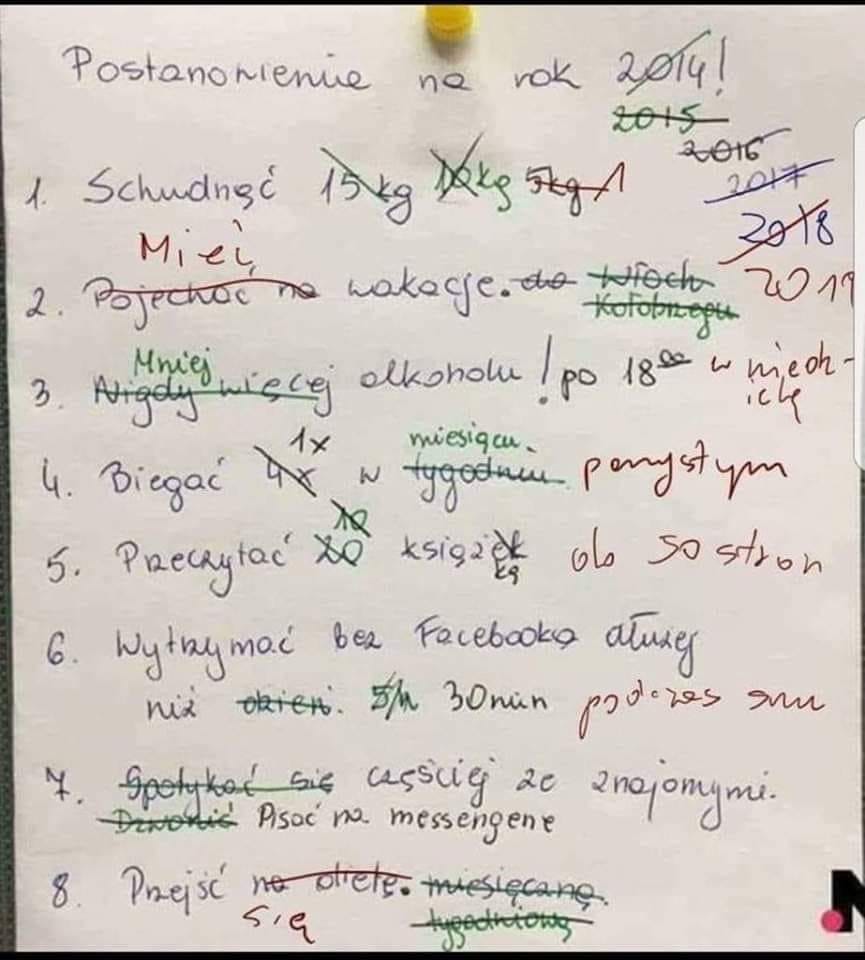 Postanowienie na rok 2014!
2015
2016
2017
2018
2019
1. Schudnąć 15 kg 10 kg 5kg 1
Mieć
2. Pojechać na wakacje. do Włoch
Kołobrzegu
Mniej
3. Nigdy więcej alkoholu! po 18⁰⁰ w niedz-
ielę
1x
miesiącu.
4. Biegać 4x w tygodniu pomystym
10
5. Przeczytać 20 książek do 50 stron
kę
6. Wytrzymać bez Facebooka dłużej
niż dzień. 5h 30min podczas snu
7. Spotykać się częściej ze znajomymi.
Dzwonić Pisać na messengerze
8. Przejść na dietę. miesięczną.
się tygodniową
N